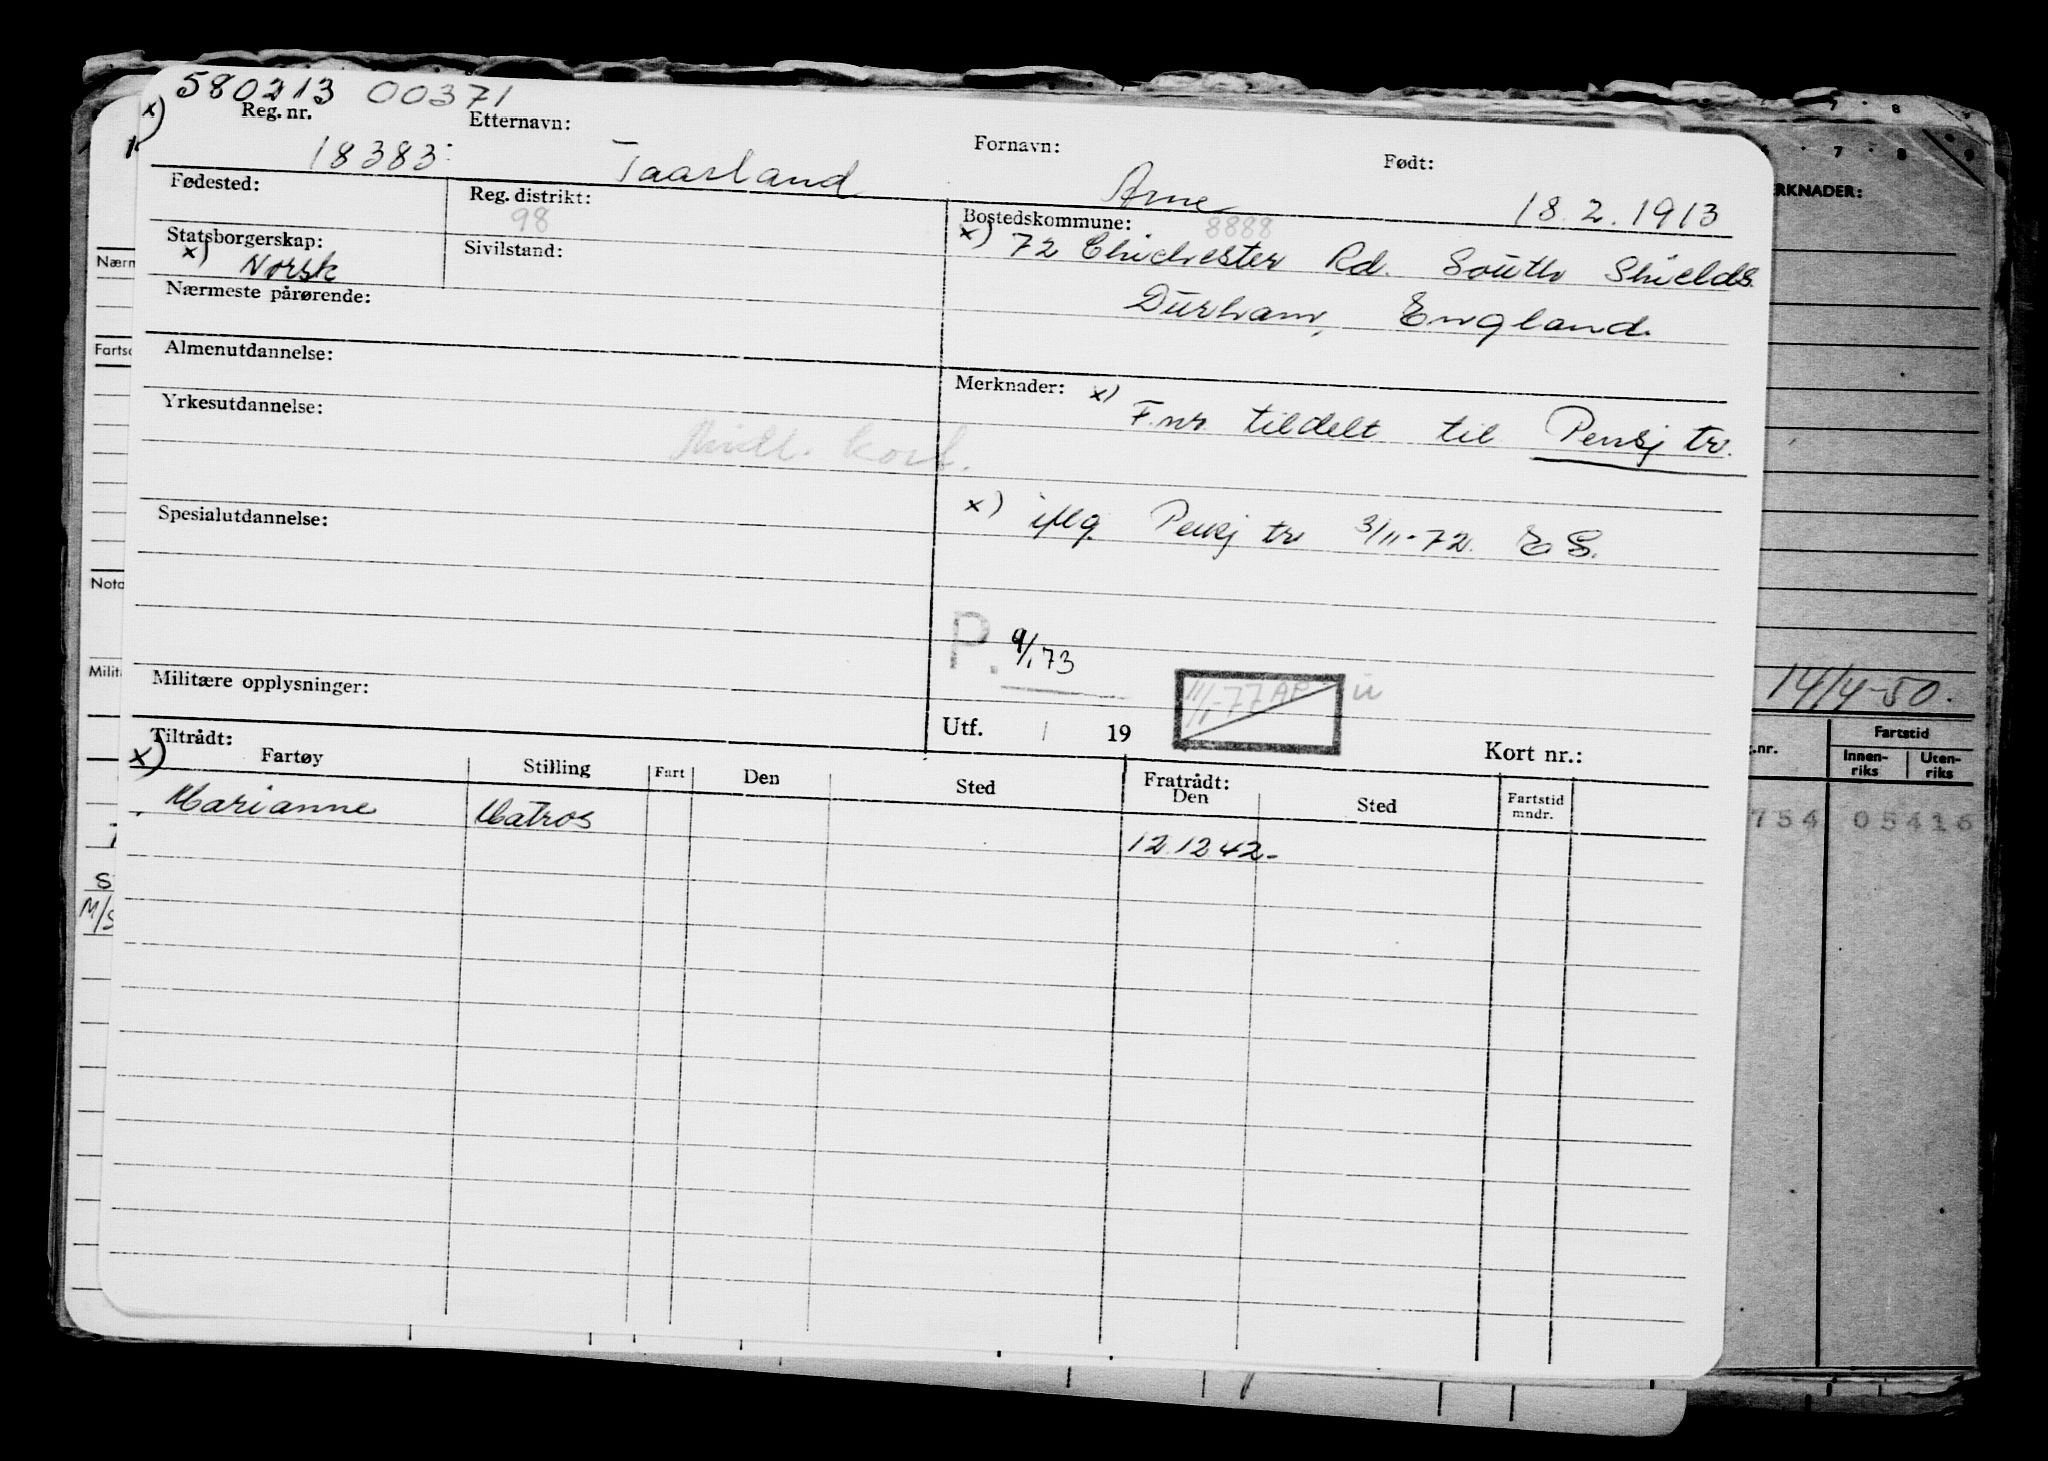 580213 00371
x) Reg. nr. Etternavn: Fornavn: Født:
18383 Taarland Arne 18.2.1913
Fødested: Reg. distrikt: 98 Bostedskommune: 8888
Statsborgerskap: Sivilstand: x) 72 Chichester Rd. South Shields.
x) Norsk Durham, England.
Nærmeste pårørende:
Almenutdannelse:
Merknader: x) F.nr. tildelt til Pensj tr.
Yrkesutdannelse:
Midl. kort.
x) iflg. Pensj tr 3/11-72. ES.
Spesialutdannelse:
P. 9/1 73
Militære opplysninger:
11/1-77 AP
Utf. / 19 Kort nr.:
x) Tiltrådt: Fratrådt:
Fartøy Stilling Fart Den Sted Den Sted Fartstid mndr.
Marianne Matros 12.12.42-
Nærm
Fartsc
Nota
Milit
S
M/S
6 7 8 9
RKNADER:
14/4-50.
g.nr. Fartstid
Innen-riks Uten-riks
754 05416